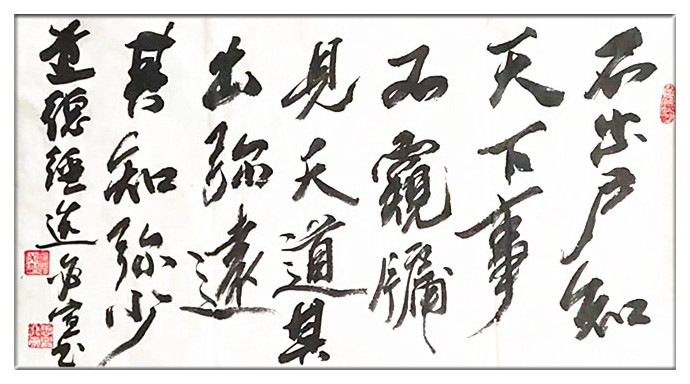 不出户知
天下事
不窺牖
見天道其
出弥遠
其知弥少
道德經选